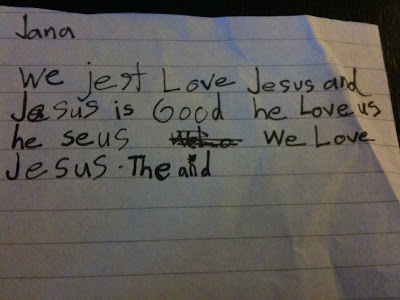 Jana
We jest Love Jesus and
Jesus is Good he Love us
he seus We Love
Jesus. The aid